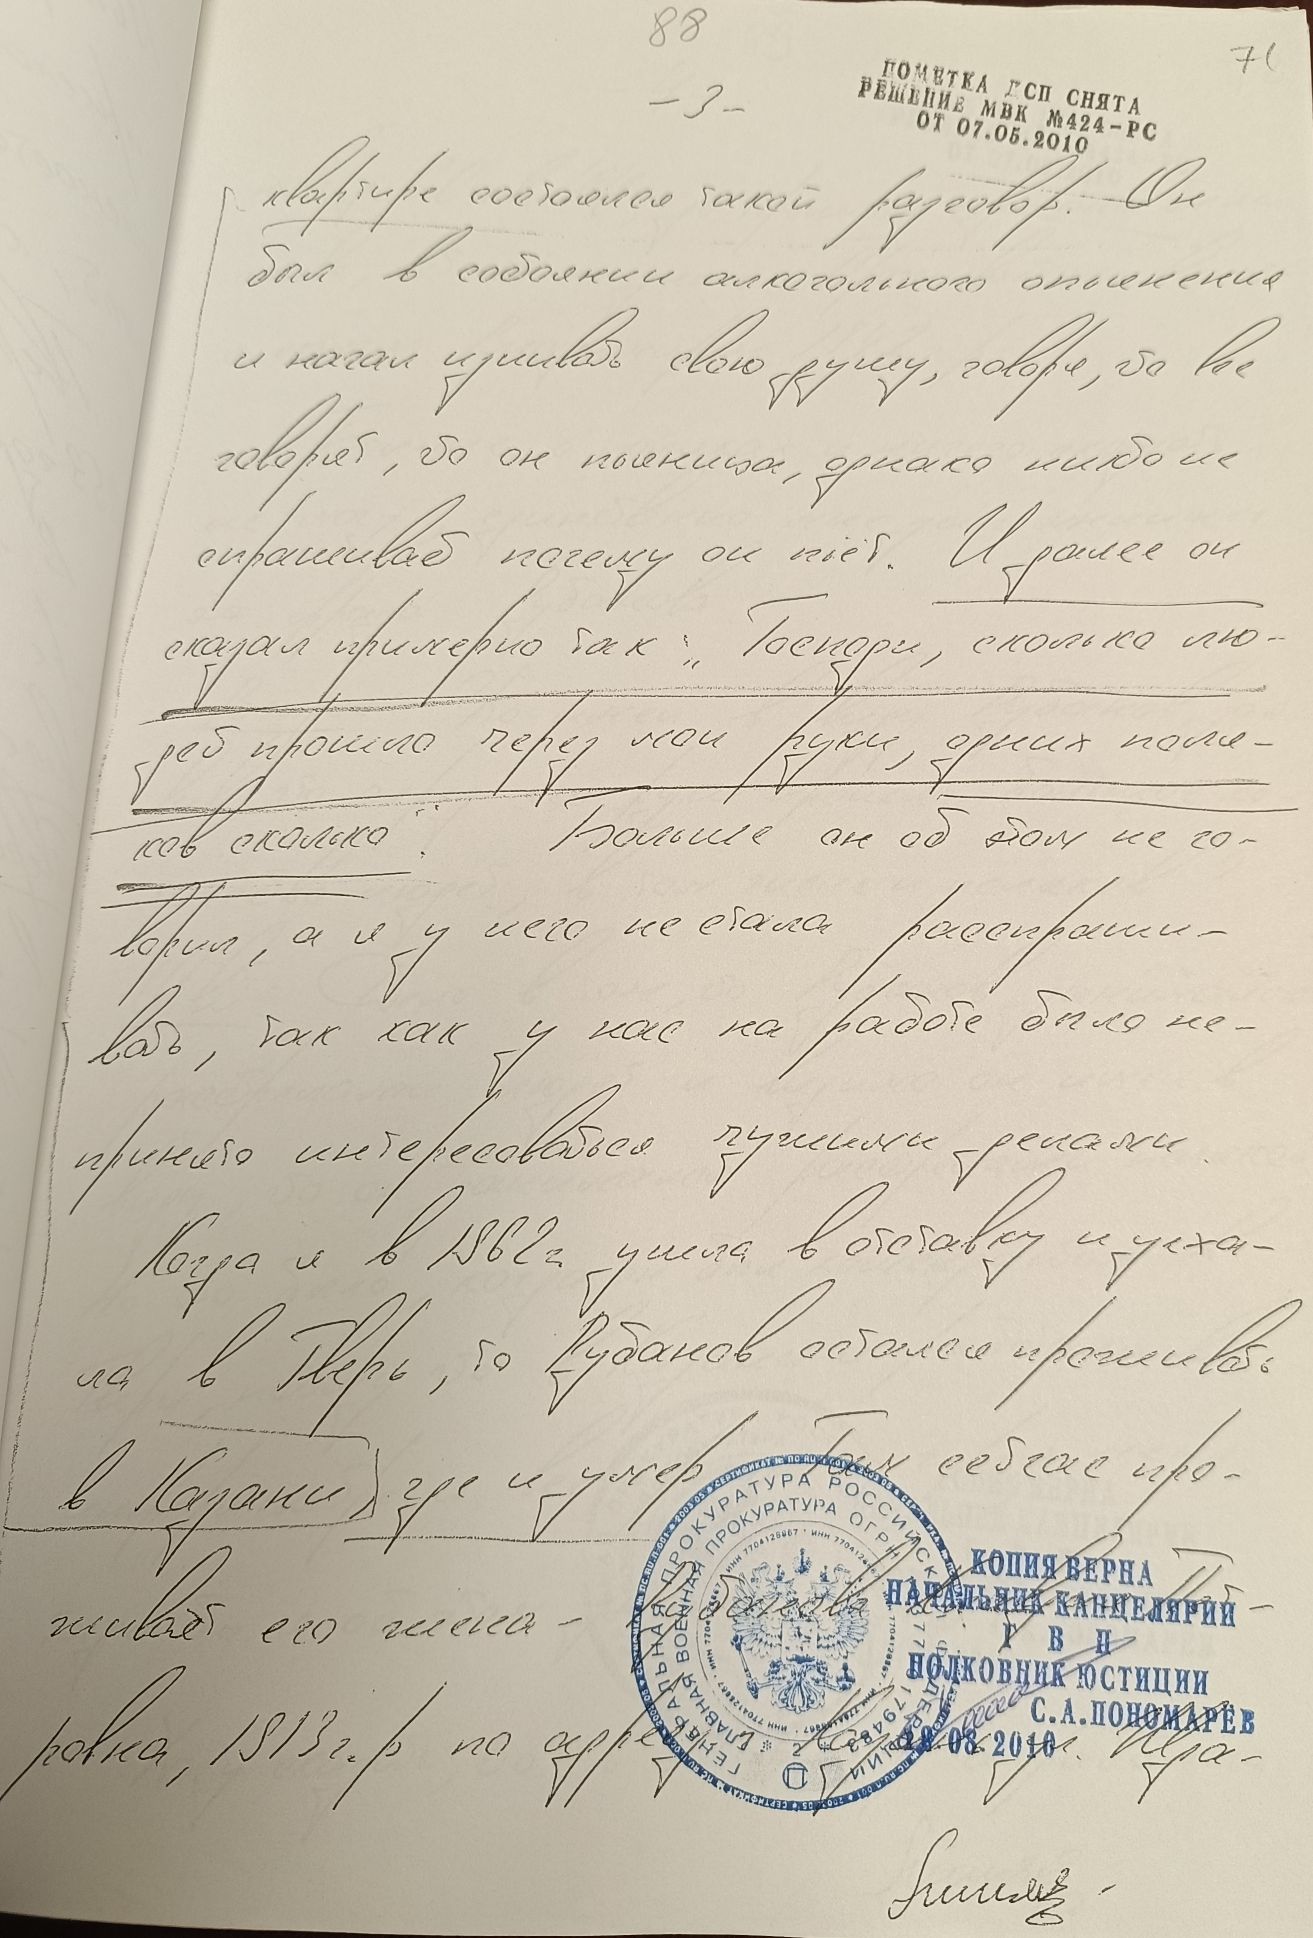 88
71
- 3 -
ПОМЕТКА ДСП СНЯТА
РЕШЕНИЕ МВК №424-РС
ОТ 07.05.2010
квартире состоялся такой разговор. Он
был в состоянии алкогольного опьянения
и начал изливать свою душу, говоря, что все
говорят, что он пьяница, однако никто не
спрашивает почему он пьёт. И далее он
сказал примерно так: „Господи, сколько лю-
дей прошло через мои руки, одних поля-
ков сколько". Больше он об этом не го-
ворил, а я у него не стала расспраши-
вать, так как у нас на работе было не-
принято интересоваться чужими делами.
Когда я в 1962 г. ушла в отставку и уеха-
ла в Тверь, то Рубанов остался проживать
в Казани, где и умер. Там сейчас про-
живает его жена -
ровна, 1913 г.р по адресу г.
ГЕНЕРАЛЬНАЯ ПРОКУРАТУРА РОССИЙСКОЙ ФЕДЕРАЦИИ
ГЛАВНАЯ ВОЕННАЯ ПРОКУРАТУРА ОГРН
КОПИЯ ВЕРНА
НАЧАЛЬНИК КАНЦЕЛЯРИИ
Г В П
ПОЛКОВНИК ЮСТИЦИИ
С.А.ПОНОМАРЁВ
08.2010